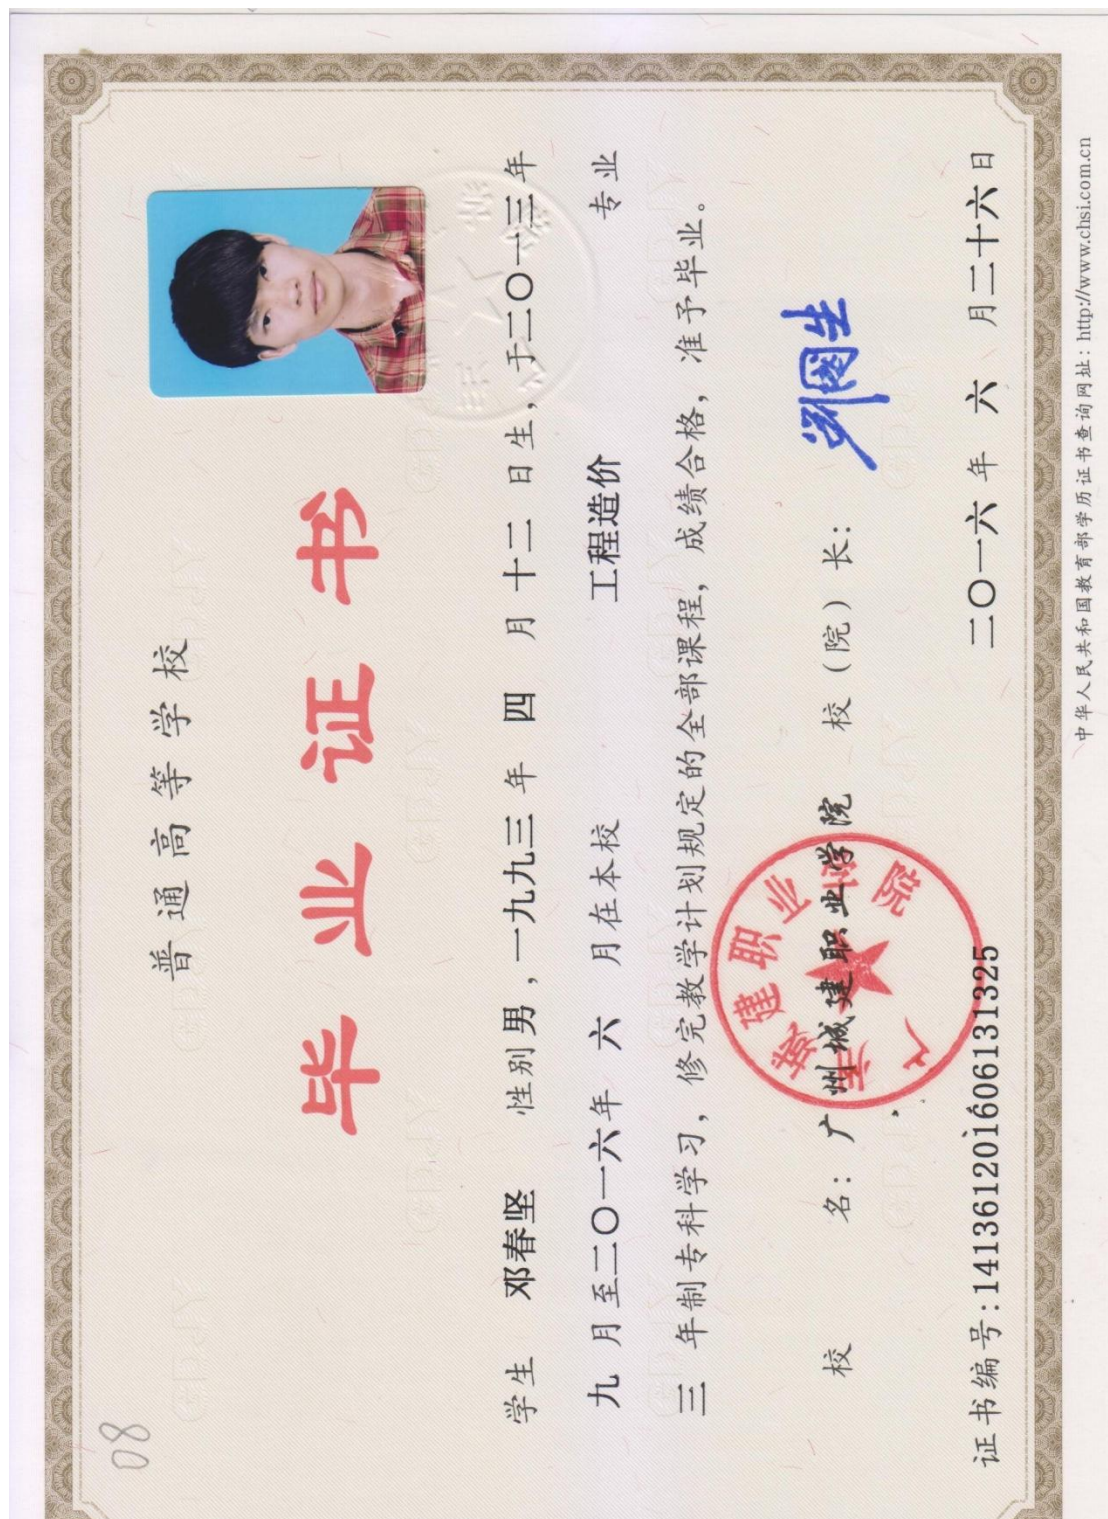 08
普通高等学校
毕业证书
学生 邓春坚 性别男，一九九三年 四 月十二日生，于二〇一三年
九 月至二〇一六年 六 月在本校 工程造价 专业
三 年制专科学习，修完教学计划规定的全部课程，成绩合格，准予毕业。
校 名：广州城建职业学院 校（院）长：
广州城建职业学院
证书编号：141361201606131325
二〇一六年 六 月二十六日
中华人民共和国教育部学历证书查询网址：http://www.chsi.com.cn